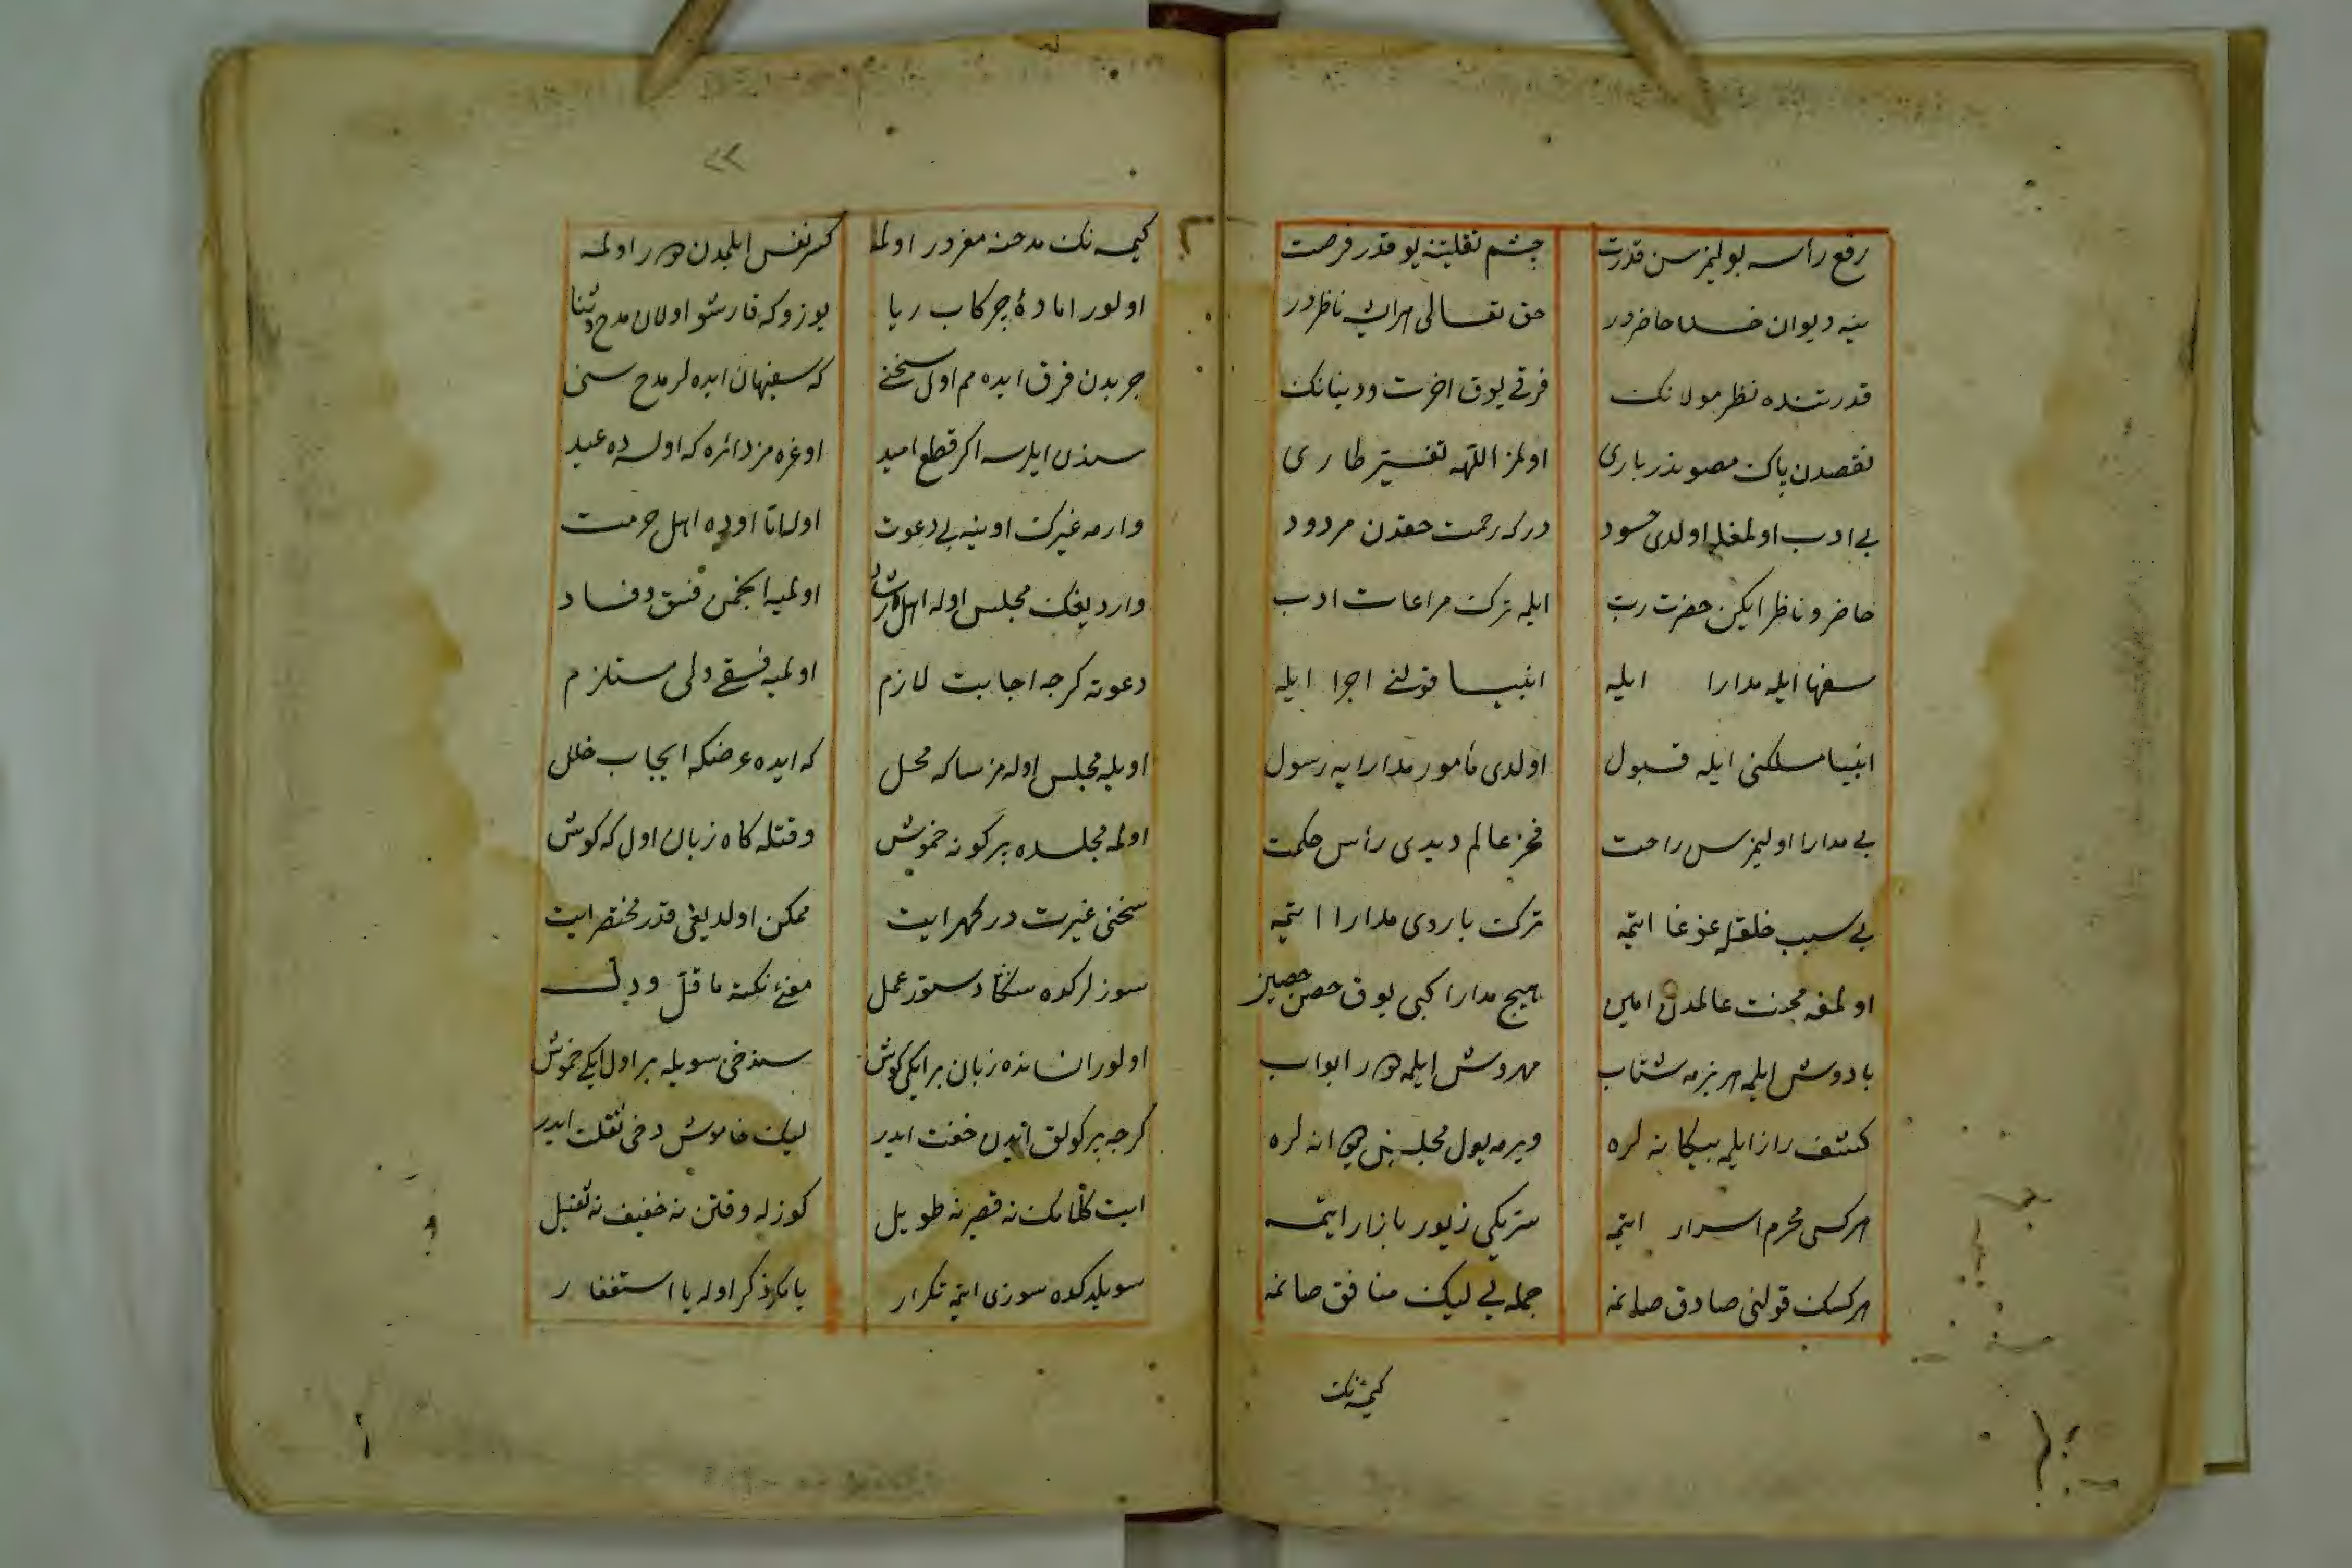 رفع رأسه بولیمز سن قدرت چشم تقلیبنه یوقدر فرصت
ینه دیوان خدا حاضردر حق تعالی هر ایشه ناظردر
قدرتنده نظر مولانک فرقی یوق اخرت ودنیانک
نقصدن پاک مصوندر باری اولمز اللهه تغیّر طاری
بی ادب اولمغله اولدی حسود درکه رحمت حقدن مردود
حاضر وناظر ایکن حضرت رب ایلمه ترک مراعات ادب
سفها ایله مدارا ایله انبیا قولنی اجرا ایله
انبیا مسلکنی ایله قبول اولدی مأمور مدارایه رسول
بی مدارا اولیمز سن راحت فخر عالم دیدی رأس حکمت
بی سبب خلقله غوغا ایتمه ترک باروی مدارا ایتمه
اولمغه محنت عالمدن امین هیچ مدارا کبی یوق حصن حصین
بادوش ایلمه هر بزمه شتاب مهروش ایلمه دور ابواب
کشف راز ایلمه بیکانه لره ویرمه یول مجلسنی دیوانه لره
هرکسی محرم اسرار ایتمه ستریکی زیور بازار ایتمه
هرکسک قولنی صادق صانمه جمله یی لیک منافق صانمه
کیمسه نک
کیمسه نک مدحنه مغرور اولمه کسر نفس ایلمدن دور اولمه
اولور اماده چرکاب ریا یوزوکه قارشو اولان مدح وثنا
چربدن فرق ایده مم اول سخنی که سفیهان ایده لر مدح سنی
سندن ایلرسه اکر قطع امید اوغره مز دائره که اولسه ده عید
وارمه غیرک اوینه بی دعوت اولسه تا اوده اهل حرمت
واردیغک مجلس اوله اهل رشاد اولمیه انجمن فسق وفساد
دعوته کرچه اجابت لازم اولمیه فسقی ولی مستلزم
اویله مجلس اوله مز ساکه محل که ایده عرضکه ایجاب خلل
اولمه مجلسده پرکونه خموش وقتله کاه زبان اول که کوش
سخنی غیرت در کهر ایت ممکن اولدیغی قدر مختصر ایت
سوزلرکده سکا دستور عمل مغنی نکته ما قلّ ودلّ
اولور انسانده زبان بر ایکی کوش سندخی سویله بر اول ایکی خموش
کرچه پرکولق ایدن خفت ایدر لیک خاموش دخی ثقلت ایدر
ایت کلامک نه قصیر نه طویل کوزله وقتن نه خفیف نه ثقیل
سویلدکده سوزی ایتمه تکرار یا نکر ذکر اوله یا استغفار